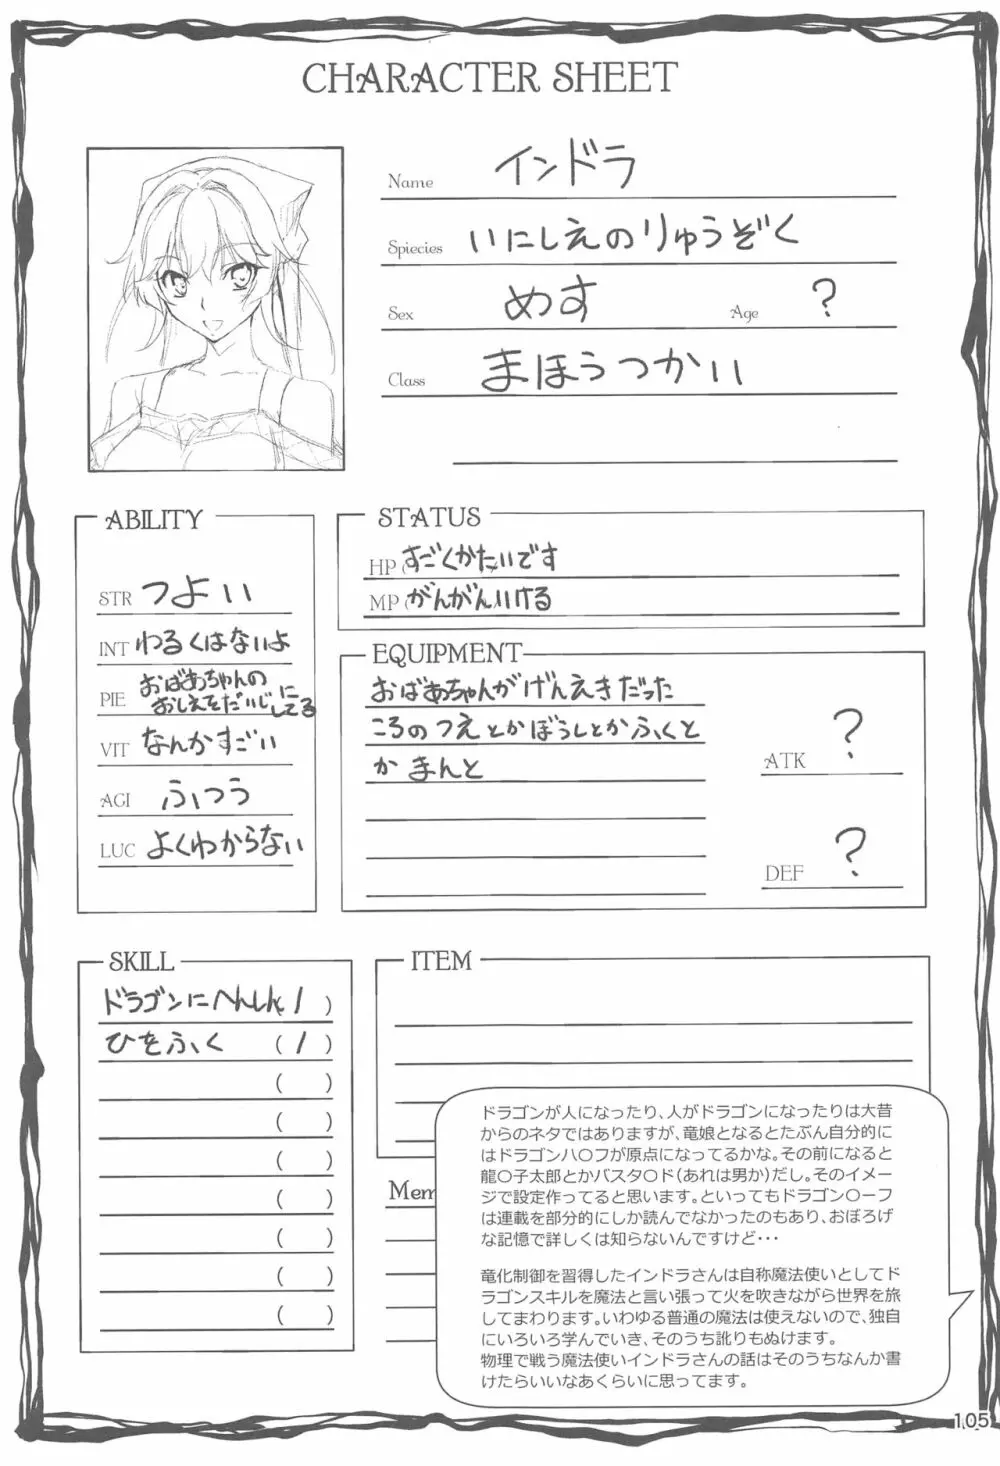 CHARACTER SHEET
Name インドラ
Spiecies いにしえのりゅうぞく
Sex めす Age ?
Class まほうつかい
ABILITY
STR つよい
INT わるくはないよ
PIE おばあちゃんの
おしえをだいじにしてる
VIT なんかすごい
AGI ふつう
LUC よくわからない
STATUS
HP(すごくかたいです
MP(がんがんいける
EQUIPMENT
おばあちゃんがげんえきだった
ころのつえとかぼうしとかふくと
かまんと
ATK ?
DEF ?
SKILL
ドラゴンにへんしん(1)
ひをふく (1)
( )
( )
( )
( )
( )
( )
( )
ITEM
Mem
ドラゴンが人になったり、人がドラゴンになったりは大昔
からのネタではありますが、竜娘となるとたぶん自分的に
はドラゴンハ〇フが原点になってるかな。その前になると
龍〇子太郎とかバスタ〇ド(あれは男か)だし。そのイメー
ジで設定作ってると思います。といってもドラゴン〇ーフ
は連載を部分的にしか読んでなかったのもあり、おぼろげ
な記憶で詳しくは知らないんですけど・・・
竜化制御を習得したインドラさんは自称魔法使いとしてド
ラゴンスキルを魔法と言い張って火を吹きながら世界を旅
してまわります。いわゆる普通の魔法は使えないので、独自
にいろいろ学んでいき、そのうち訛りもぬけます。
物理で戦う魔法使いインドラさんの話はそのうちなんか書
けたらいいなあくらいに思ってます。
105